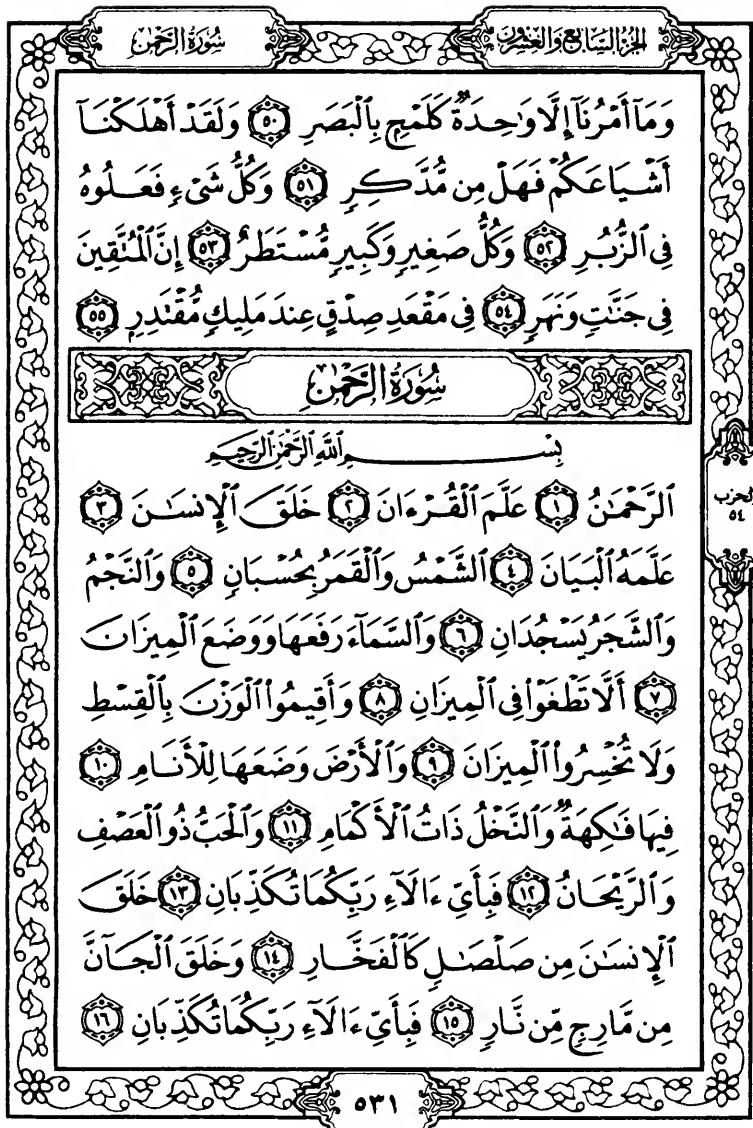 سُورَةُ الرَّحْمٰن
الجُزءُ السَّابِعُ وَالعِشرُونَ
وَمَآ أَمْرُنَآ إِلَّا وَٰحِدَةٌ كَلَمْحٍۭ بِٱلْبَصَرِ ۝٥٠ وَلَقَدْ أَهْلَكْنَآ
أَشْيَاعَكُمْ فَهَلْ مِن مُّدَّكِرٍ ۝٥١ وَكُلُّ شَىْءٍ فَعَلُوهُ
فِى ٱلزُّبُرِ ۝٥٢ وَكُلُّ صَغِيرٍ وَكَبِيرٍ مُّسْتَطَرٌ ۝٥٣ إِنَّ ٱلْمُتَّقِينَ
فِى جَنَّٰتٍ وَنَهَرٍ ۝٥٤ فِى مَقْعَدِ صِدْقٍ عِندَ مَلِيكٍ مُّقْتَدِرٍۭ ۝٥٥
سُورَةُ الرَّحْمٰن
بِسْمِ ٱللَّهِ ٱلرَّحْمَٰنِ ٱلرَّحِيمِ
ٱلرَّحْمَٰنُ ۝١ عَلَّمَ ٱلْقُرْءَانَ ۝٢ خَلَقَ ٱلْإِنسَٰنَ ۝٣
عَلَّمَهُ ٱلْبَيَانَ ۝٤ ٱلشَّمْسُ وَٱلْقَمَرُ بِحُسْبَانٍ ۝٥ وَٱلنَّجْمُ
وَٱلشَّجَرُ يَسْجُدَانِ ۝٦ وَٱلسَّمَآءَ رَفَعَهَا وَوَضَعَ ٱلْمِيزَانَ
۝٧ أَلَّا تَطْغَوْا۟ فِى ٱلْمِيزَانِ ۝٨ وَأَقِيمُوا۟ ٱلْوَزْنَ بِٱلْقِسْطِ
وَلَا تُخْسِرُوا۟ ٱلْمِيزَانَ ۝٩ وَٱلْأَرْضَ وَضَعَهَا لِلْأَنَامِ ۝١٠
فِيهَا فَٰكِهَةٌ وَٱلنَّخْلُ ذَاتُ ٱلْأَكْمَامِ ۝١١ وَٱلْحَبُّ ذُو ٱلْعَصْفِ
وَٱلرَّيْحَانُ ۝١٢ فَبِأَىِّ ءَالَآءِ رَبِّكُمَا تُكَذِّبَانِ ۝١٣ خَلَقَ
ٱلْإِنسَٰنَ مِن صَلْصَٰلٍ كَٱلْفَخَّارِ ۝١٤ وَخَلَقَ ٱلْجَآنَّ
مِن مَّارِجٍ مِّن نَّارٍ ۝١٥ فَبِأَىِّ ءَالَآءِ رَبِّكُمَا تُكَذِّبَانِ ۝١٦
الحزب
٥٤
٥٣١